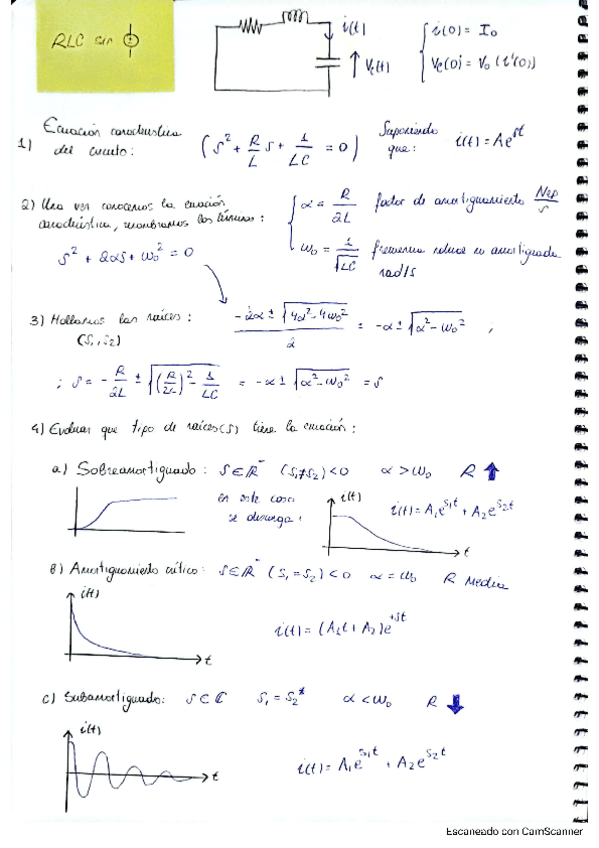 RLC sin
i(t)
Vc(t)
i(0) = I₀
Vc(0) = V₀ (i'(0))
1) Ecuación característica del circuito: (s² + R/L s + 1/LC = 0) Suponiendo que: i(t) = Ae^st
2) Una vez conocemos la ecuación
característica, nombramos los términos:
α = R/2L factor de amortiguamiento Nep/s
ω₀ = 1/√LC frecuencia amortiguada rad/s
s² + 2αs + ω₀² = 0
3) Hallamos las raíces: (-2α ± √(4α² - 4ω₀²))/2 = -α ± √(α² - ω₀²) ;
(s₁, s₂)
; s = -R/2L ± √((R/2L)² - 1/LC) = -α ± √(α² - ω₀²) = s
4) Evaluar que tipo de raíces (s) tiene la ecuación:
a) Sobreamortiguado: s∈ℝ⁻ (s₁≠s₂) < 0 α > ω₀ R ↑
en este caso
se descarga:
i(t)
t
i(t) = A₁e^s₁t + A₂e^s₂t
b) Amortiguamiento crítico: s∈ℝ⁻ (s₁ = s₂) < 0 α = ω₀ R Media
i(t)
t
i(t) = (A₁t + A₂)e^+st
c) Subamortiguado: s∈ℂ s₁ = s₂* α < ω₀ R ↓
i(t)
t
i(t) = A₁e^s₁t + A₂e^s₂t
Escaneado con CamScanner